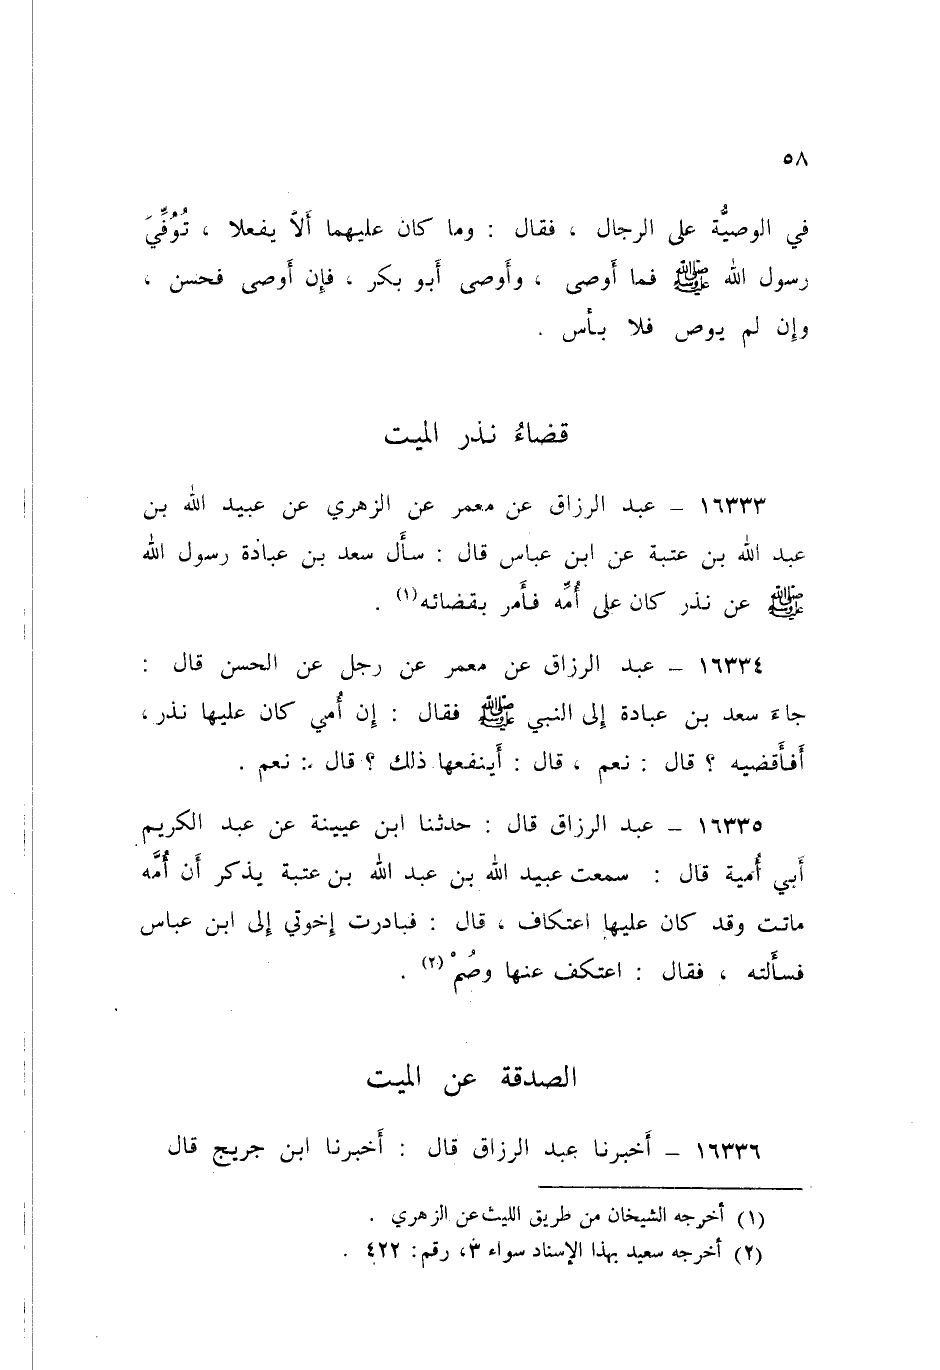 ٥٨
في الوصيَّة على الرجال ، فقال : وما كان عليهما ألاَّ يفعلا ، تُوُفِّيَ
رسول الله ﷺ فما أوصى ، وأوصى أبو بكر ، فإن أوصى فحسن ،
وإن لم يوص فلا بأس .
قضاءُ نذر الميت
١٦٣٣٣ - عبد الرزاق عن معمر عن الزهري عن عبيد الله بن
عبد الله بن عتبة عن ابن عباس قال : سأل سعد بن عبادة رسول الله
ﷺ عن نذر كان على أُمِّه فأمر بقضائه(١) .
١٦٣٣٤ - عبد الرزاق عن معمر عن رجل عن الحسن قال :
جاءَ سعد بن عبادة إلى النبي ﷺ فقال : إن أُمي كان عليها نذر ،
أفأقضيه ؟ قال : نعم ، قال : أينفعها ذلك ؟ قال : نعم .
١٦٣٣٥ - عبد الرزاق قال : حدثنا ابن عيينة عن عبد الكريم
أبي أُمية قال : سمعت عبيد الله بن عبد الله بن عتبة يذكر أن أُمَّه
ماتت وقد كان عليها اعتكاف ، قال : فبادرت إخوتي إلى ابن عباس
فسألته ، فقال : اعتكف عنها وصُمْ(٢) .
الصدقة عن الميت
١٦٣٣٦ - أخبرنا عبد الرزاق قال : أخبرنا ابن جريج قال
(١) أخرجه الشيخان من طريق الليث عن الزهري .
(٢) أخرجه سعيد بهذا الإسناد سواء ٣، رقم: ٤٢٢ .